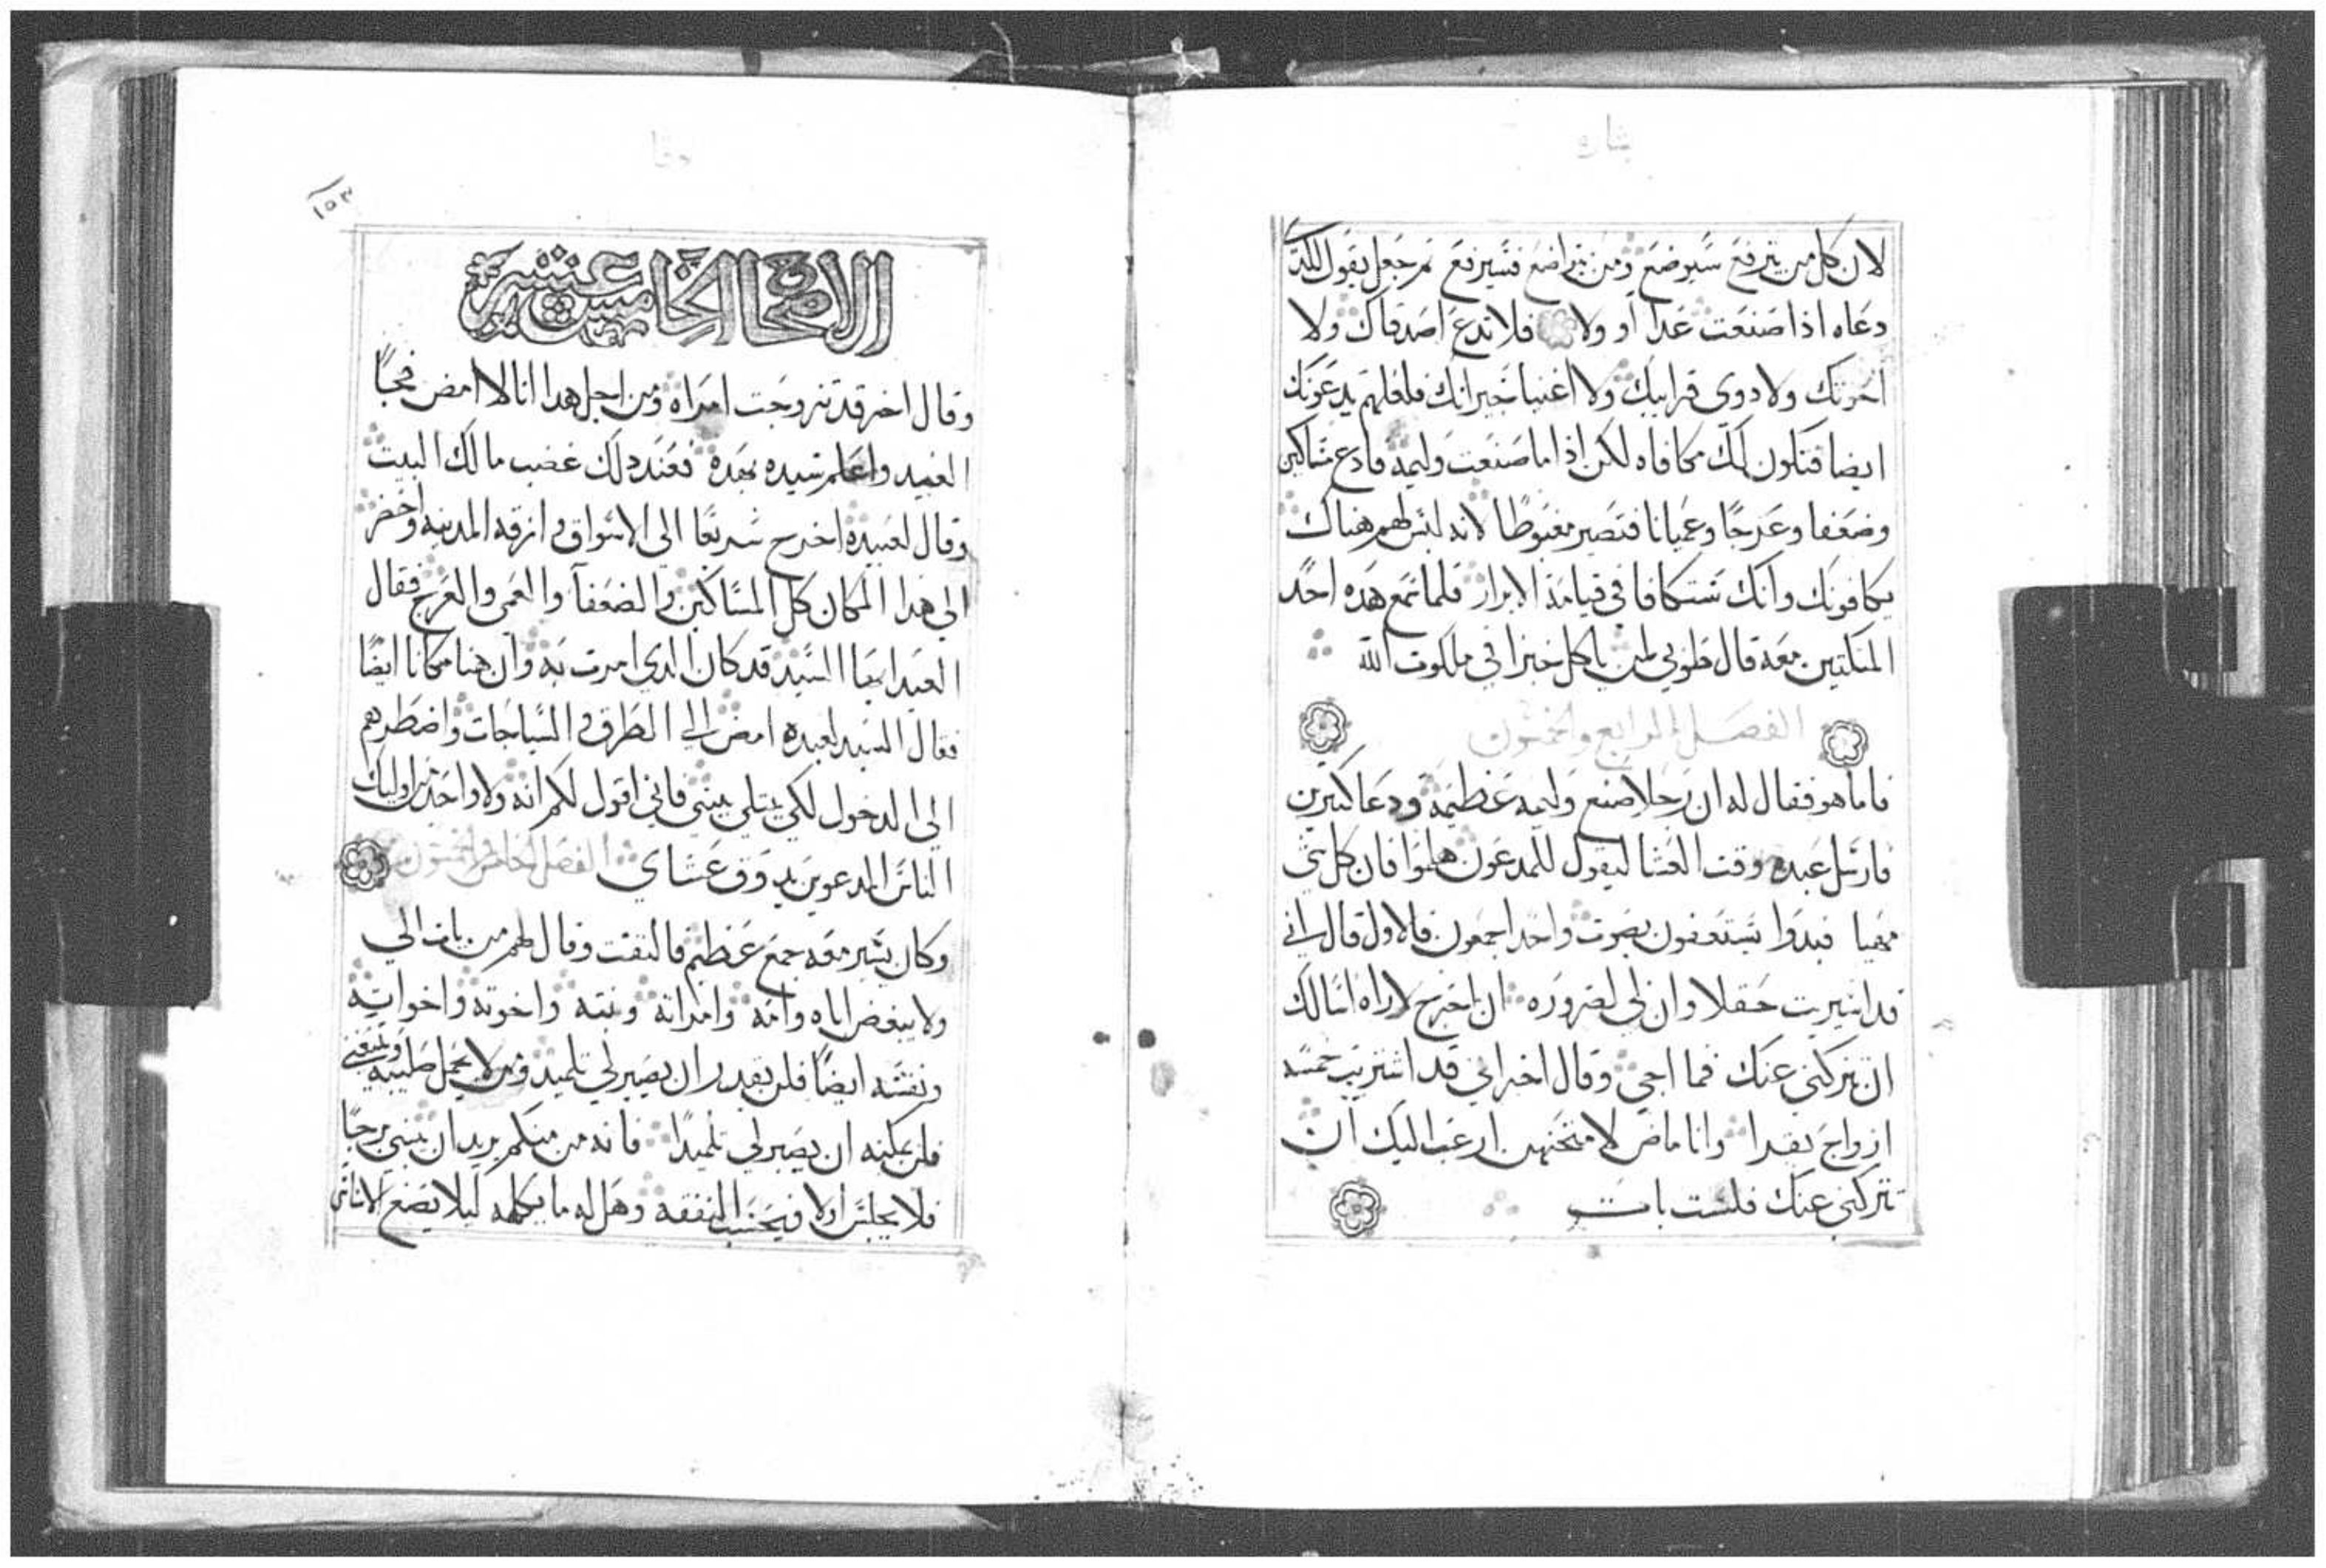 بشارة
لان كل من يترفع سيوضع ومن يتواضع فسيرفع ثم جعل يقول للذي
دعاه اذا صنعت غدا او ولا فلا تدع اصدقاك ولا
اخوتك ولا دوي قرابتك ولا اغنيا جيرانك فلعلهم يدعونك
ايضا فتكون لك مكافاه لكن اذا ما صنعت وليمه فادع مساكين
وضعفا وعرجًا وعميانا فتصير مغبوطا لانه ليس لهم هناك
يكافونك وانك ستكافا في قيامة الابرار فلما سمع هده احد
المتكيين معه قال طوبي لمن ياكل خبزا في ملكوت الله
الفصل الرابع والخمسون
فاما هو فقال له ان رجلا صنع وليمه عظيمة ودعا كثيرين
فارسل عبده وقت العشا ليقول للمدعون هلموا فان كل شي
مهيا فبدوا يستعفون بصوت واحد اجمعون فالاول قال اني
قد اشتريت حقلا وان لي لضروره ان اخرج لاراه اسالك
ان تتركني عنك فما اجي وقال اخر اني قد اشتريت خمسه
ازواج بقرا وانا ماض لامتحنهن ارغب اليك ان
تتركني عنك فلست بات
لوقا
١٥٣
الاصحاح الخامس عشر
وقال اخر قد تزوجت امراه ومن اجل هدا انا لا امض فجا
العبيد واعلم سيده بهده فعند دلك غضب مالك البيت
وقال لعبيده اخرج سريعًا الي الاسواق و ازقه المدينه واحضر
الي هدا المكان كل المساكين والضعفا والعمي والعرج فقال
العبد ايها السيد قد كان الدي امرت به وان هنا مكانا ايضًا
فقال السيد لعبده امض الي الطرق و السياجات واضطرهم
الي الدخول لكي يمتلي بيتي فاني اقول لكم انه ولا واحد من اوليك
الناس المدعوين يدوق عشاي الفصل الخامس والخمسون
وكان يسير معه جمع عظيم فالتفت وقال لهم من يات الي
ولا يبغض اباه وامه وامراته وبنيه واخوته واخواته
ونفسه ايضًا فلن يقدر ان يصير لي تلميد ومن لا يحمل صليبه ويتبعني
فلن يمكنه ان يصير لي تلميدًا فانه من منكم يريد ان يبني برجًا
فلا يجلس اولا فيحسب النفقه وهل له ما يكمله ليلا يضع الاساس